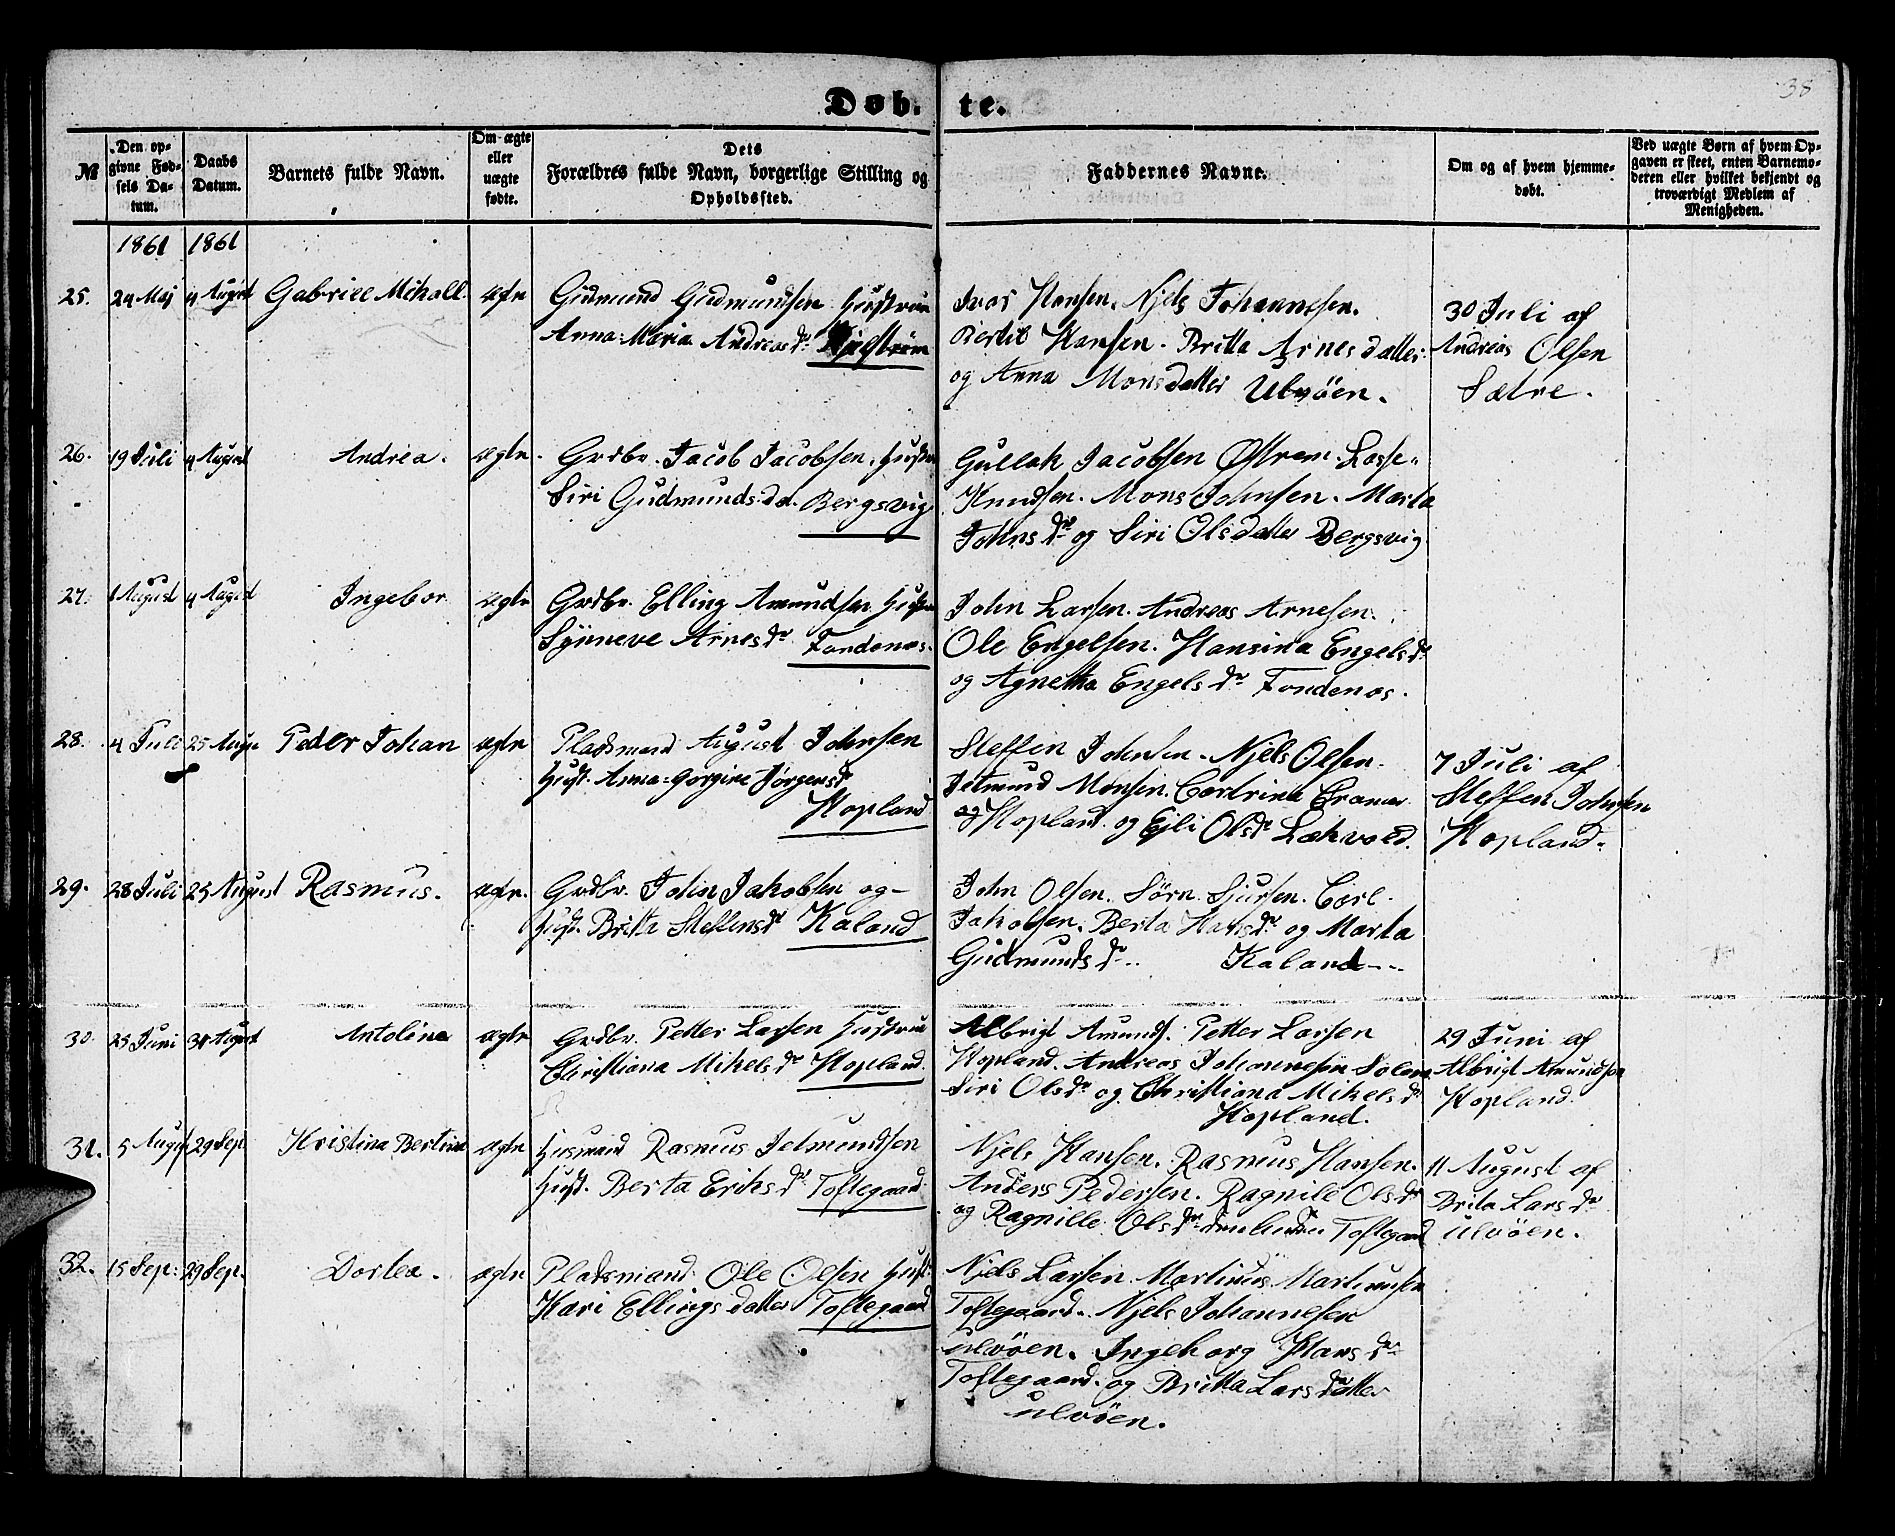 38
Døb. te.
№
Den op-
givne Fød-
sels Da-
tum.
Daabs
Datum.
Barnets fulde Navn.
Om ægte
eller
uægte
fødte.
Dets
Forældres fulde Navn, borgerlige Stilling og
Opholdssted.
Faddernes Navne.
Om og af hvem hjemme-
døbt.
Ved uægte Børn af hvem Op-
gaven er skeet, enten Barnemo-
deren eller hvilket bekjendt og
troværdigt Medlem af
Menigheden.
1861 1861
25. 24 Maj 4 August Gabriel Mikall ægte
Gudmund Gudmundsen Hustrue
Anna Maria Andreasdr
Ivar Hansen. Njels Johannesen.
Bertil Hansen. Britta Arnesdatter
og Anna Monsdatter Ulvöen.
30 Juli af
Andreas Olsen
Sætre.
26. 19 Juli 4 August Andrea. ægte.
Grdbr. Jacob Jacobsen. Hustrue
Siri Gudmunds.da. Bergsvig
Gullak Jacobsen Østrem. Lasse
Knudsen. Mons Johnsen. Marta
Johnsdr og Siri Olsdatter Bergsvig
27. 1 August 4 August Ingebor ægte
Grdbr. Elling Amundsen Hustrue
Synneve Arnesdr Fondenæs.
John Larsen. Andreas Arnesen.
Ole Engelsen. Hansina Engelsdr
og Agnetha Engelsdr Fondenæs.
28. 4 Juli 25 Augu Peder Johan ægte
Pladsmand August Johnsen
Hust. Anna Gorgine Jørgensdr
Hopland
Steffen Johnsen. Njels Olsen.
Jetmund Monsen. Cartrina Cramer
Hopland og Ejli Olsdr Lækvold.
7 Juli af
Steffen Johnsen
Hopland.
29. 28 Juli 25 August Rasmus. ægte.
Grdbr. John Jakobsen og
Hust. Britta Steffensdr Kaland
John Olsen. Sörn Sjursen. Carl
Jakobsen. Berta Hansdr og Marta
Gudmundsdr Kaland
30. 25 Juni August Antoline ægte
Grdbr. Petter Larsen Hustrue
Christiana Mikelsdr Hopland.
Albrigt Amunds. Petter Larsen
Hopland. Andreas Johannesen
Siri Olsdr og Christiana Mikelsdr
Hopland.
29 Juni af
Albrigt Amundsen
Hopland.
31. 5 August 29 Sep. Kristina Bertina ægte
Husmand Rasmus Jetmundsen
Hust. Berta Eriksdr Toftegaard
Njels Hansen. Rasmus Hansen.
Anders Pedersen. Ragnile Olsdr
og Ragnille Olsdr den Toftegaard
11 August af
Brita Larsdr
Ulvöen.
32. 15 Sep: 29 Sep. Dortea. ægte
Pladsmand Ole Olsen Hust.
Kari Ellingsdatter Toftegaard
Njels Larsen. Martinus Martinusen
Toftegaard. Njels Johannesen
Ulvöen. Ingeborg Hansdr
Toftegaard. og Britta Larsdatter
Ulvöen.